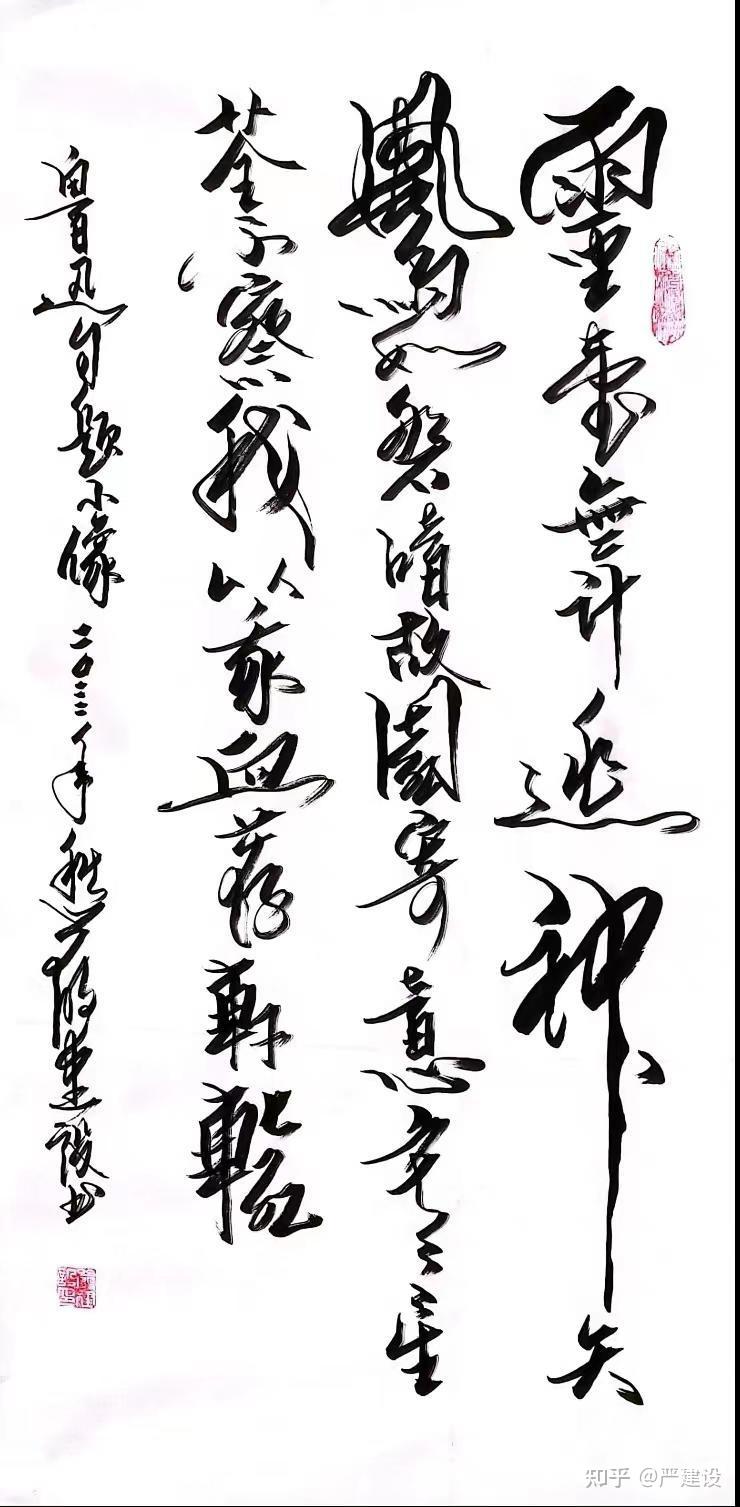 靈臺無计逃神矢
風雨如磐暗故園寄意寒星
荃不察我以我血荐軒轅
魯迅自題小像 二〇 年 建设书
知乎 @严建设